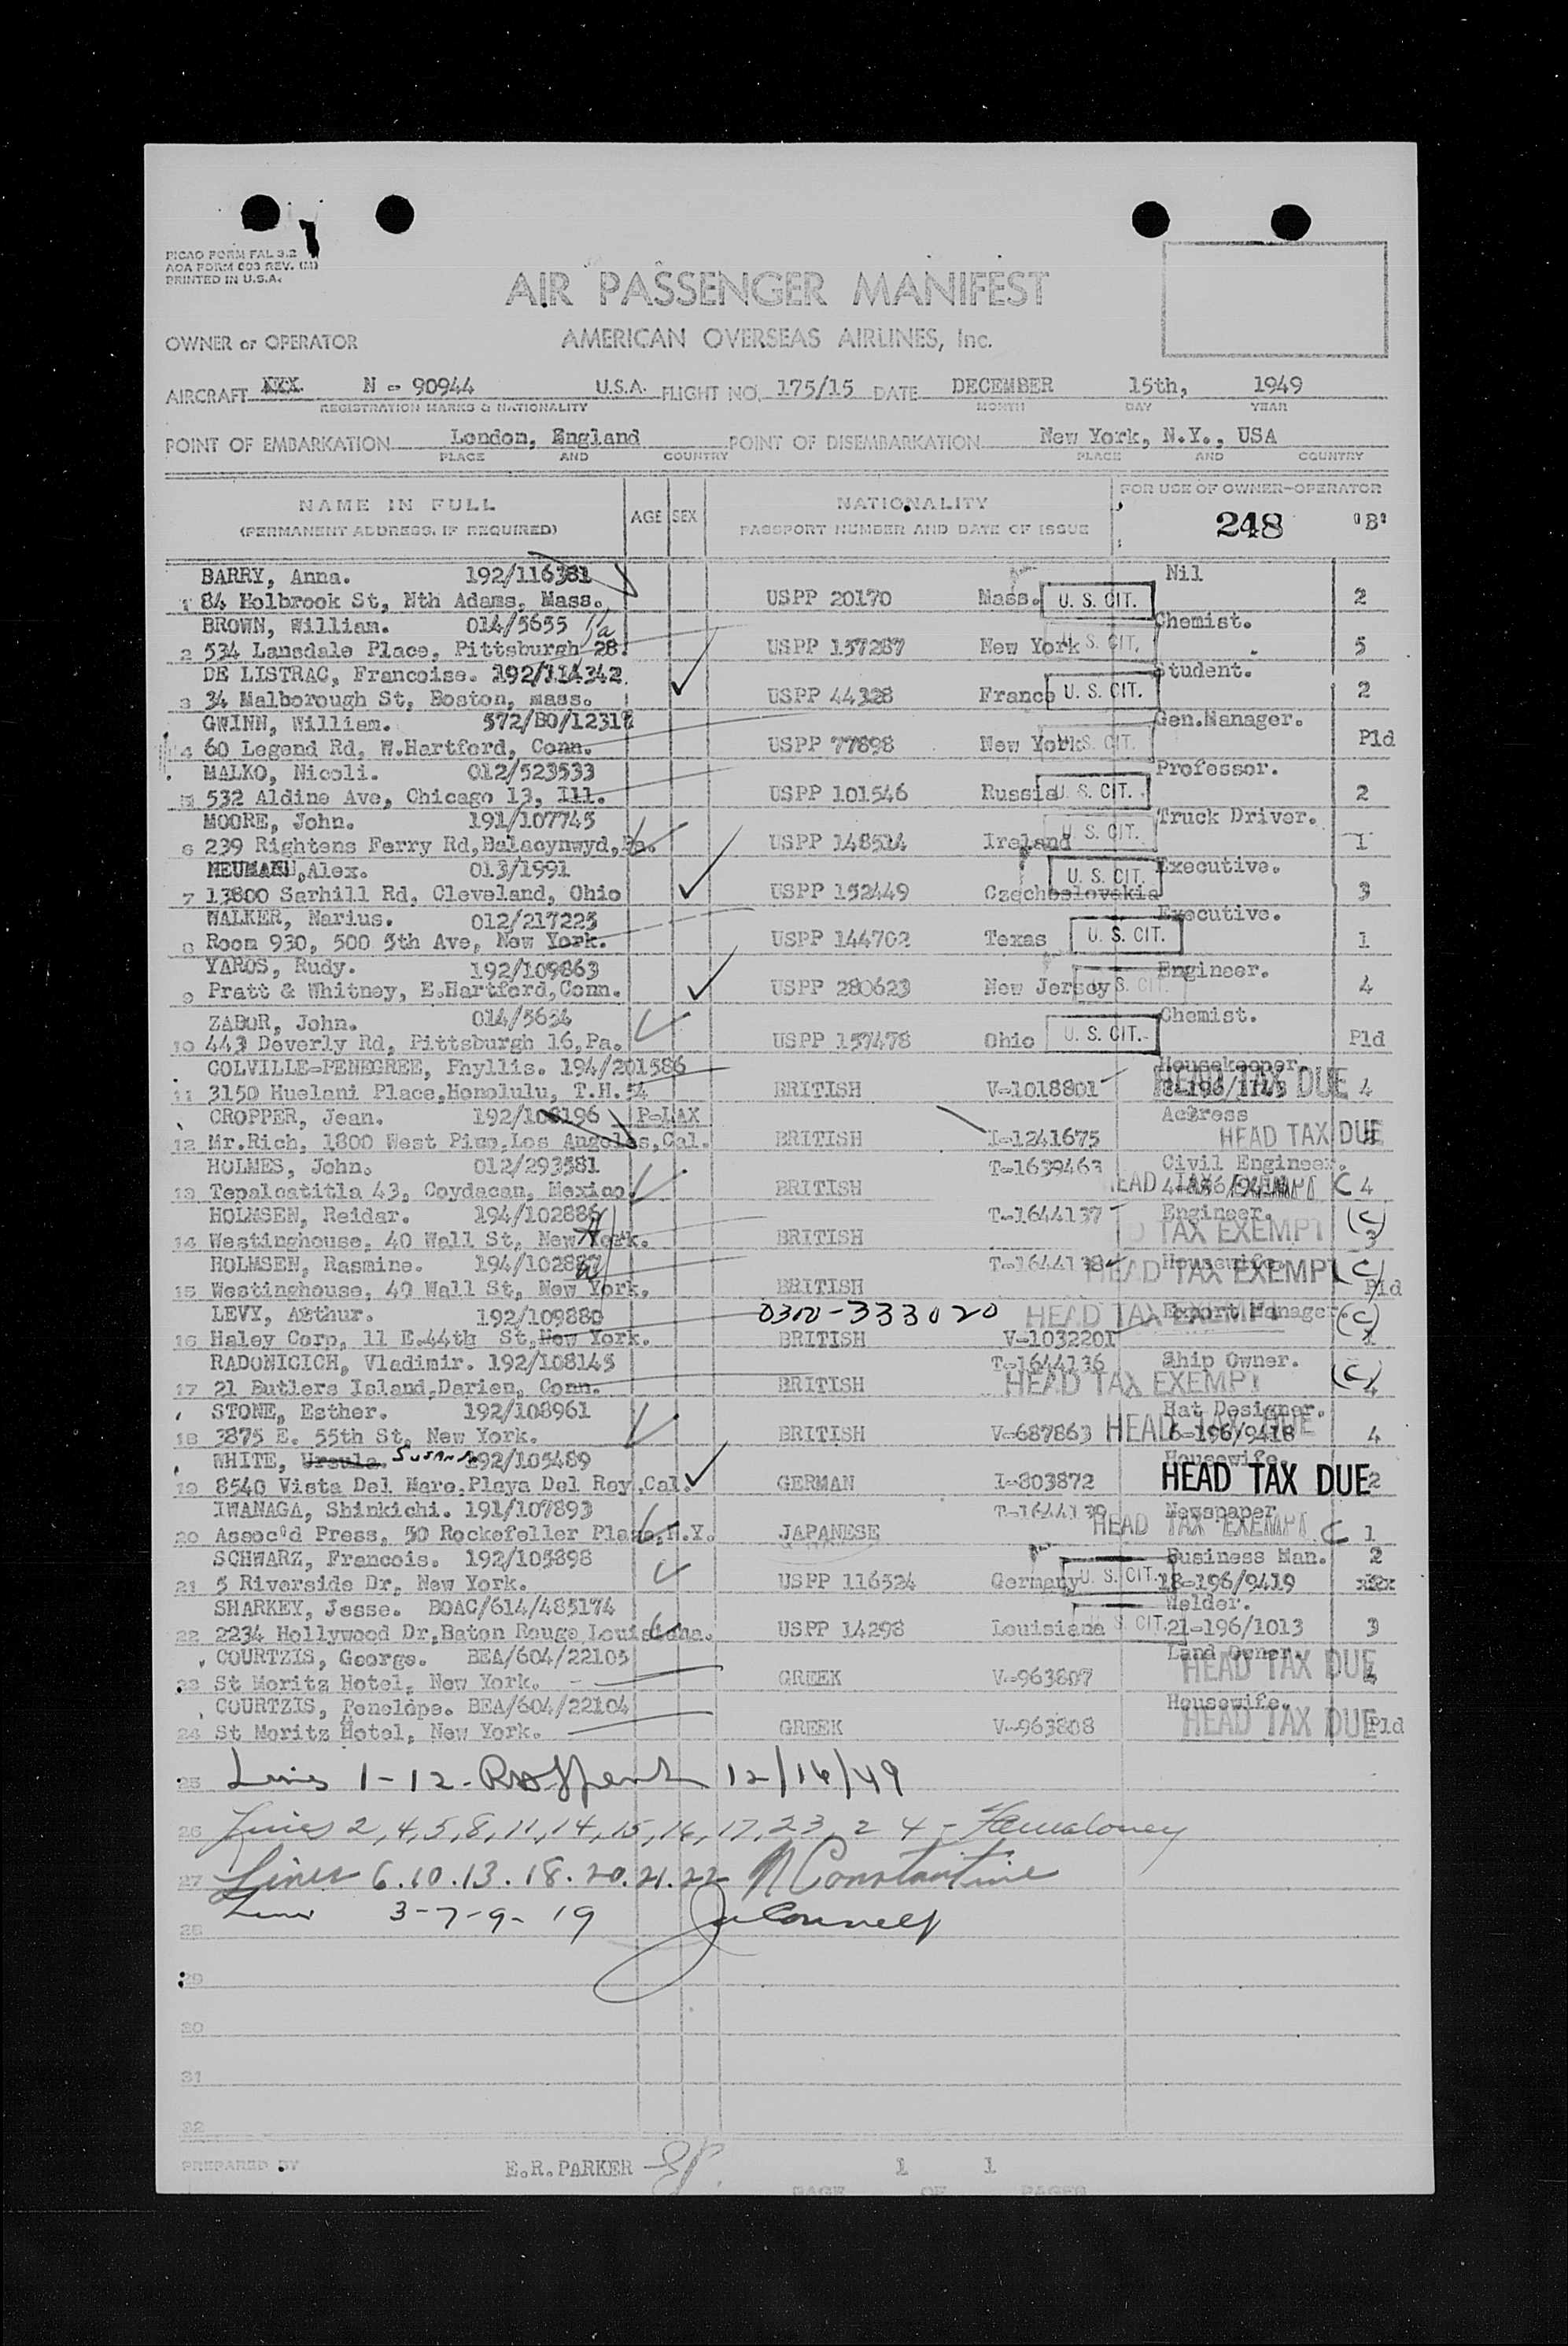 PICAO FORM FAL 3.2
AOA FORM 603 REV. (M)
PRINTED IN U.S.A.
AIR PASSENGER MANIFEST
OWNER or OPERATOR AMERICAN OVERSEAS AIRLINES, Inc.
AIRCRAFT XXX N - 90944 U.S.A. FLIGHT NO. 175/15 DATE DECEMBER 15th, 1949
REGISTRATION MARKS & NATIONALITY MONTH DAY YEAR
POINT OF EMBARKATION London, England POINT OF DISEMBARKATION New York, N.Y., USA
PLACE AND COUNTRY PLACE AND COUNTRY
NAME IN FULL
(PERMANENT ADDRESS, IF REQUIRED)
AGE SEX
NATIONALITY
PASSPORT NUMBER AND DATE OF ISSUE
FOR USE OF OWNER-OPERATOR
248 "B"
BARRY, Anna. 192/116381 Nil
1 84 Holbrook St, Nth Adams, Mass. USPP 20170 Mass. U. S. CIT. 2
BROWN, William. 014/5655 Chemist.
2 534 Lansdale Place, Pittsburgh 28. USPP 157287 New York U. S. CIT. 5
DE LISTRAC, Francoise. 192/114342 Student.
3 34 Malborough St, Boston, mass. USPP 44328 France U. S. CIT. 2
GWINN, William. 572/BO/12317 Gen.Manager.
4 60 Legend Rd, W.Hartford, Conn. USPP 77898 New York U. S. CIT. Pld
MALKO, Nicoli. 012/523533 Professor.
5 532 Aldine Ave, Chicago 13, Ill. USPP 101546 Russia U. S. CIT. 2
MOORE, John. 191/107745 Truck Driver.
6 239 Rightens Ferry Rd,Balacynwyd,Pa. USPP 148514 Ireland U. S. CIT. 1
NEUMANN,Alex. 013/1991 Executive.
7 13800 Sarhill Rd, Cleveland, Ohio USPP 152449 Czechoslovakia U. S. CIT. 3
WALKER, Narius. 012/217225 Executive.
8 Room 930, 500 5th Ave, New York. USPP 144702 Texas U. S. CIT. 1
YAROS, Rudy. 192/109863 Engineer.
9 Pratt & Whitney, E.Hartford,Conn. USPP 280623 New Jersey U. S. CIT. 4
ZABOR, John. 014/5634 Chemist.
10 443 Deverly Rd, Pittsburgh 16,Pa. USPP 157478 Ohio U. S. CIT. Pld
COLVILLE-PENEGREE, Phyllis. 194/201586 Housekeeper.
11 3150 Huelani Place,Honolulu, T.H.54 BRITISH V-1018801 HEAD TAX DUE 4
CROPPER, Jean. 192/108196 P-LAX Actress
12 Mr.Rich, 1800 West Pico,Los Angeles,Cal. BRITISH I-1241675 HEAD TAX DUE
HOLMES, John. 012/293581 T-1639463 Civil Engineer.
13 Tepalcatitla 43, Coydacan, Mexico. BRITISH HEAD TAX EXEMPT C 4
HOLMSEN, Reidar. 194/102886 T-1644137 Engineer. (C)
14 Westinghouse, 40 Wall St, New York. BRITISH TAX EXEMPT 3
HOLMSEN, Rasmine. 194/102887 T-1644138 Housewife. (C)
15 Westinghouse, 40 Wall St, New York. BRITISH HEAD TAX EXEMPT Pld
LEVY, Arthur. 192/109880 0300-333020 HEAD TAX EXEMPT Export Manager (C)
16 Haley Corp, 11 E.44th St,New York. BRITISH V-1032201
RADONICICH, Vladimir. 192/108145 T-1644136 Ship Owner. (C)
17 21 Butlers Island,Darien, Conn. BRITISH HEAD TAX EXEMPT 4
STONE, Esther. 192/108961 Hat Designer.
18 3875 E. 55th St, New York. BRITISH V-687863 HEAD TAX DUE 6-196/9418 4
WHITE, Ursula. SUSANNA 192/105489 Housewife.
19 8540 Vista Del Mare.Playa Del Rey,Cal. GERMAN I-803872 HEAD TAX DUE 2
IWANAGA, Shinkichi. 191/107893 T-1644139 Newspaper
20 Assoc'd Press, 50 Rockefeller Plaza,N.Y. JAPANESE HEAD TAX EXEMPT C 1
SCHWARZ, Francois. 192/105898 Business Man. 2
21 5 Riverside Dr, New York. USPP 116524 Germany U. S. CIT. 18-196/9419
SHARKEY, Jesse. BOAC/614/485174 Welder.
22 2234 Hollywood Dr,Baton Rouge Louisiana. USPP 14298 Louisiana U. S. CIT. 21-196/1013 3
COURTZIS, George. BEA/604/22105 Land Owner.
23 St Moritz Hotel, New York. GREEK V-963807 HEAD TAX DUE 4
COURTZIS, Penelope. BEA/604/22104 Housewife.
24 St Moritz Hotel, New York. GREEK V-963808 HEAD TAX DUE Pld
25 Lines 1-12- 12/16/49
26 Lines 2,4,5,8,11,14,15,16,17,23,24-
27 Lines 6.10.13.18.20.21.22 N Constantine
28 Lines 3-7-9-19
29
30
31
32
PREPARED BY E.R.PARKER 1 1
PAGE OF PAGES